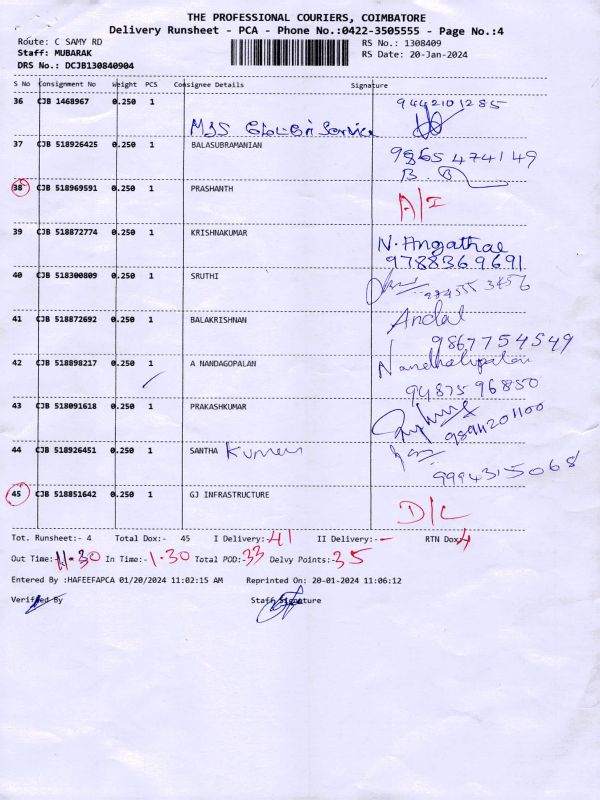 THE PROFESSIONAL COURIERS, COIMBATORE
Delivery Runsheet - PCA - Phone No.:0422-3505555 - Page No.:4
Route: C SAMY RD
RS No.: 1308409
Staff: MUBARAK
RS Date: 20-Jan-2024
DRS No.: DCJB130840904
S No Consignment No Weight PCS Consignee Details Signature
36 CJB 1468967 0.250 1 9442101285
37 CJB 518926425 0.250 1 BALASUBRAMANIAN 9865474149
B. B
38 CJB 518969591 0.250 1 PRASHANTH A/I
39 CJB 518872774 0.250 1 KRISHNAKUMAR N. Angathal
9788369691
40 CJB 518300809 0.250 1 SRUTHI
41 CJB 518872692 0.250 1 BALAKRISHNAN Andal
9867754549
42 CJB 518898217 0.250 1 A NANDAGOPALAN
9487596850
43 CJB 518091618 0.250 1 PRAKASHKUMAR
44 CJB 518926451 0.250 1 SANTHA Kumari
9994315068
45 CJB 518851642 0.250 1 GJ INFRASTRUCTURE D/L
Tot. Runsheet:- 4 Total Dox:- 45 I Delivery:- 41 II Delivery:- - RTN Dox: 4
Out Time:- 11-30 In Time:- 1-30 Total POD:- 33 Delvy Points:- 35
Entered By :HAFEEFAPCA 01/20/2024 11:02:15 AM Reprinted On: 20-01-2024 11:06:12
Verified By Staff Signature